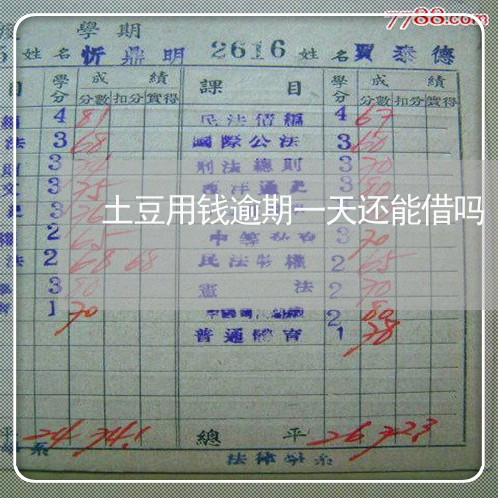 7788.com
學期
姓名 忻鼎明 2616 姓名 賈泰德
目 學分 成績 課目 學分 成績
分數 扣分 實得 分數 扣分 實得
4 81 民法債編 4 67
法 3 68 國際公法 3 60
3 刑法總則 3 70
3 75 西洋通史 3 80
土豆用钱逾期一天还能借吗
2 65 3 70
法 2 68 68 民法物權 2 65
3 80 憲法 2 70
1 70 2 80
普通體育 1 78
平 24 74.1 總平 26 72.3
系 法律學系